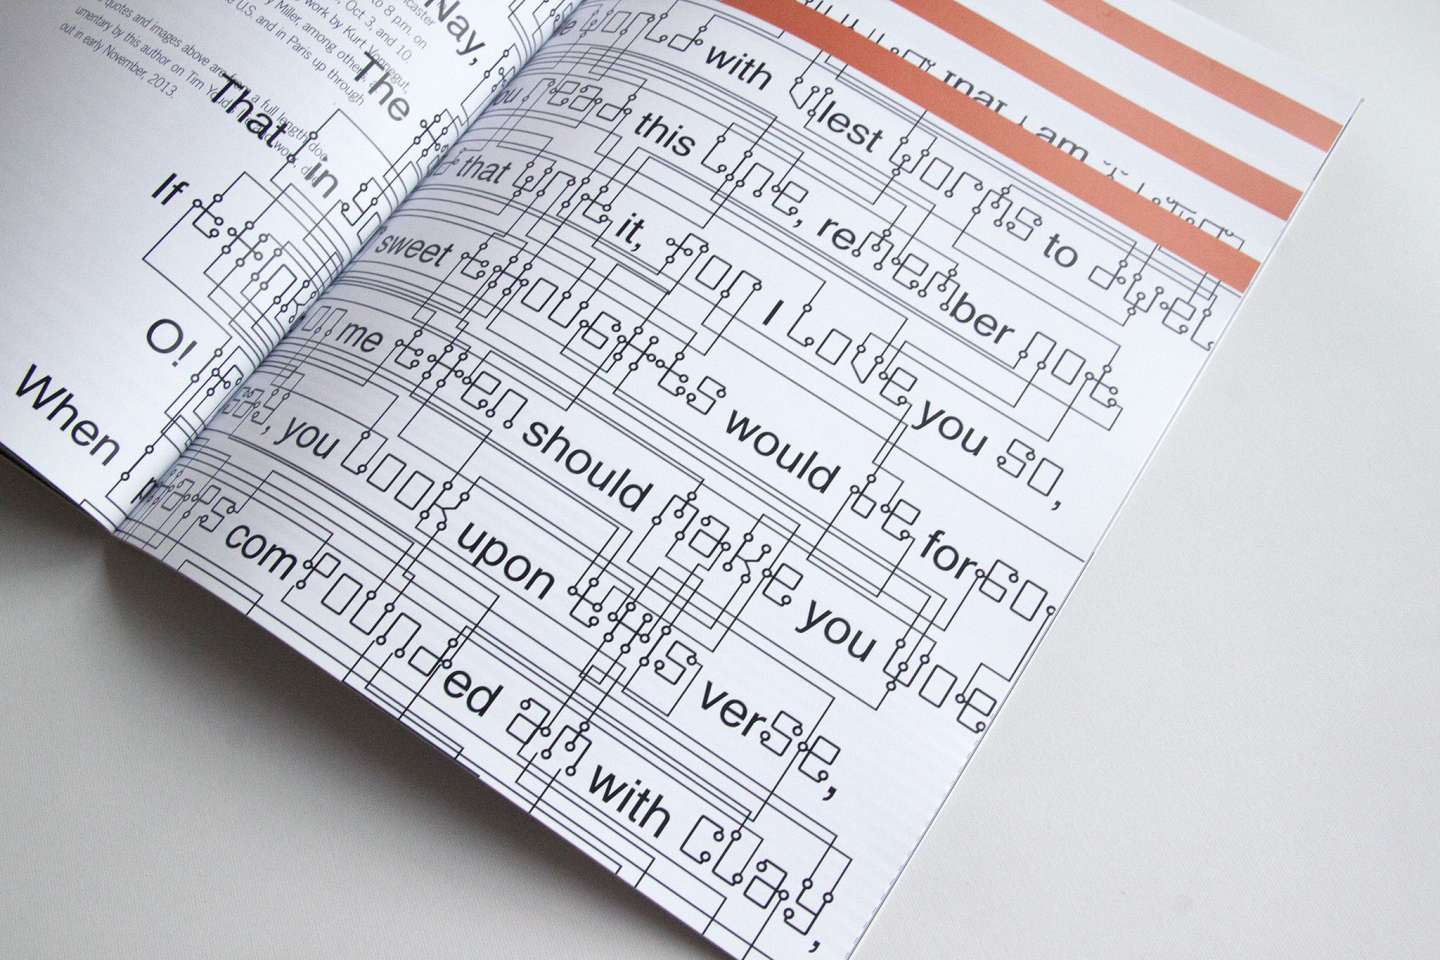 to 8 p.m. on
Oct 3, and 10.
work by Kurt Vonnegut,
Miller, among other
U.S. and in Paris up through
quotes and images above are a full length doc-
umentary by this author on Tim
out in early November, 2013.
with vilest worms to dwel
Nay, you read this line, remember not
The that writ it, for I love you so,
That in sweet thoughts would be forgot,
If think me then should make you woe
O! say, you look upon this verse,
When compounded am with clay,
am